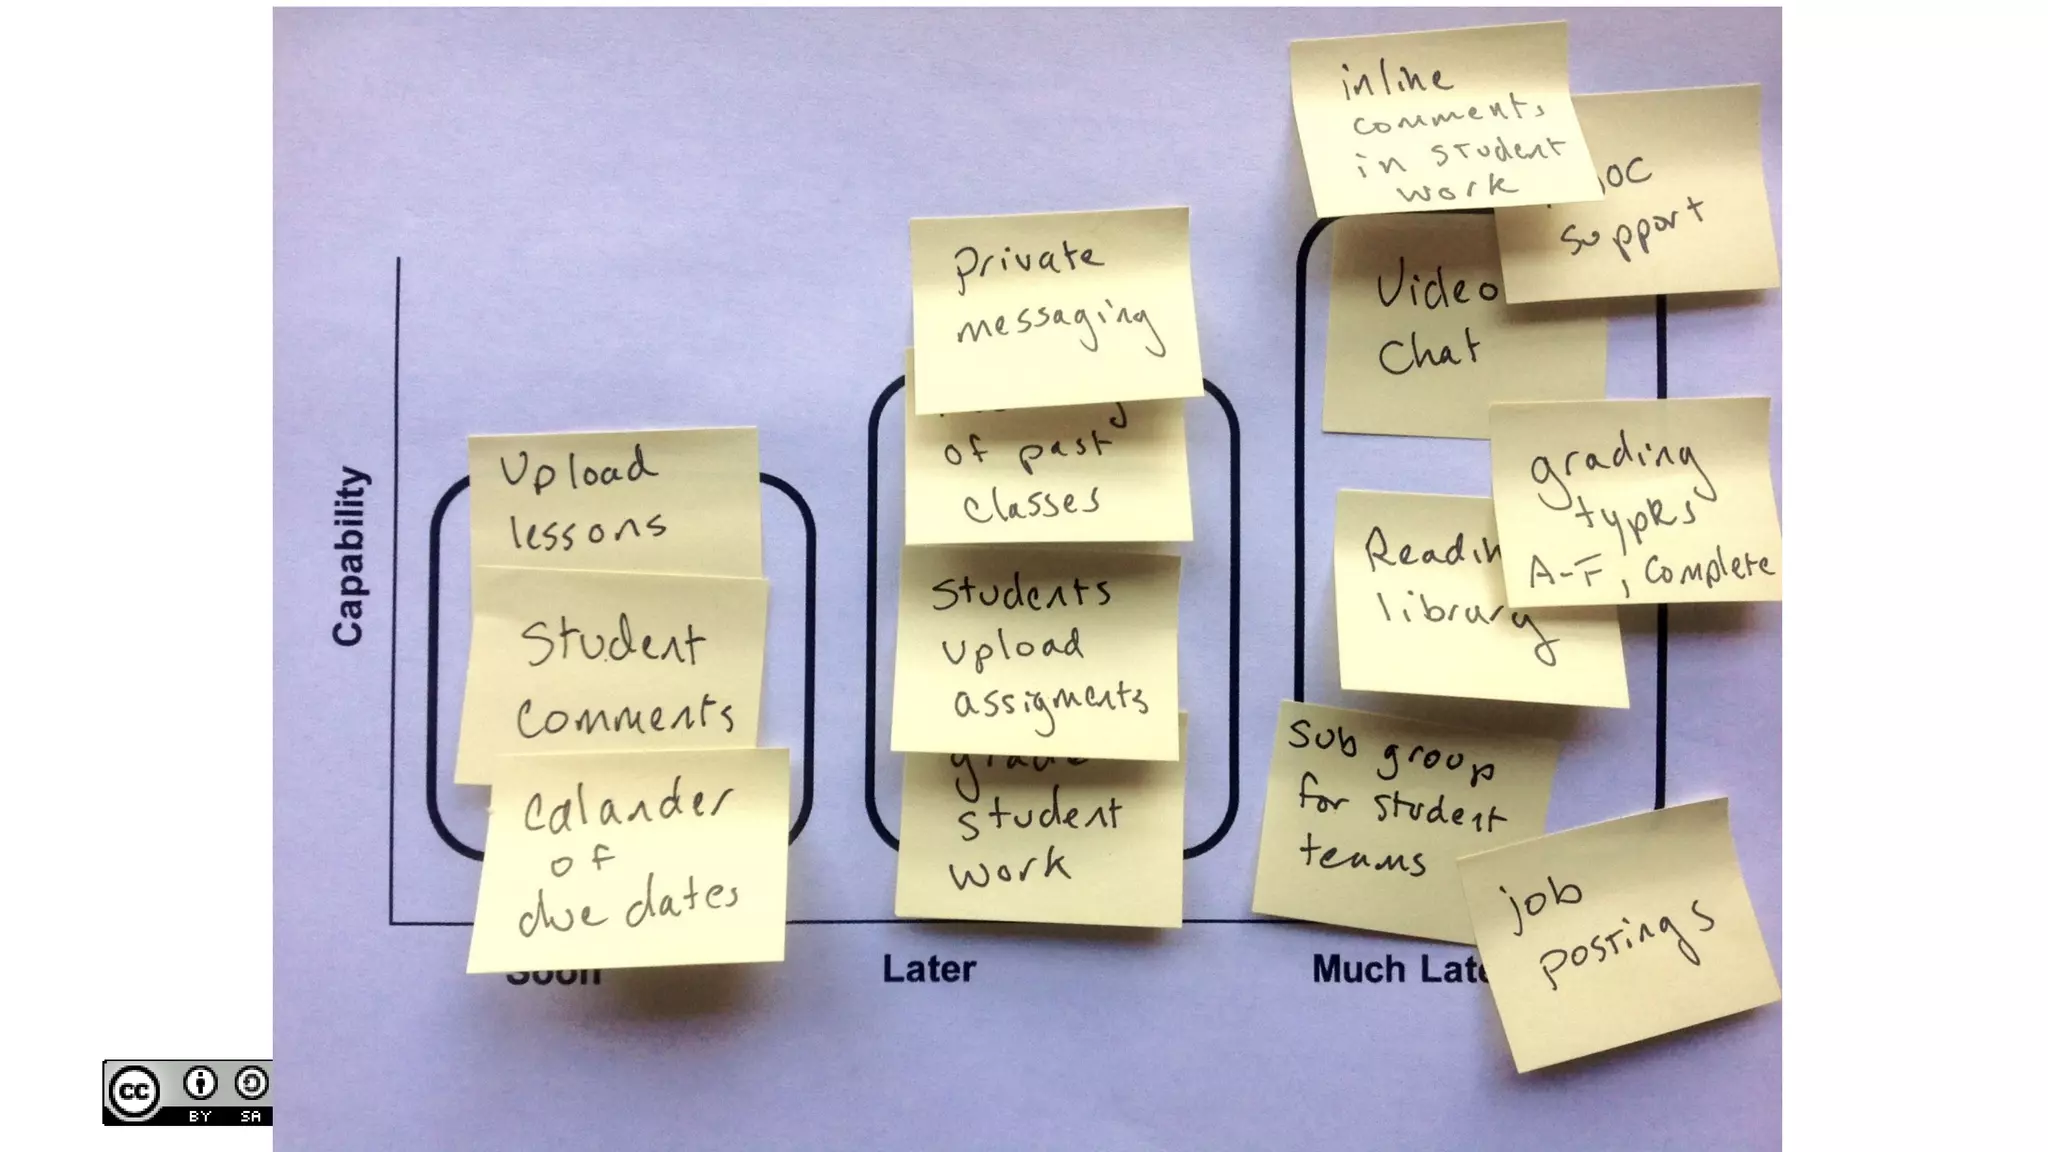 Capability
Upload
lessons
Student
comments
calander
of
due dates
Soon
private
messaging
of past
classes
Students
upload
assigments
grade
student
work
Later
inline
comments
in student
work
support
Video
Chat
grading
types
A-F, Complete
library
Sub group
for student
teams
job
postings
Much
cc
BY SA